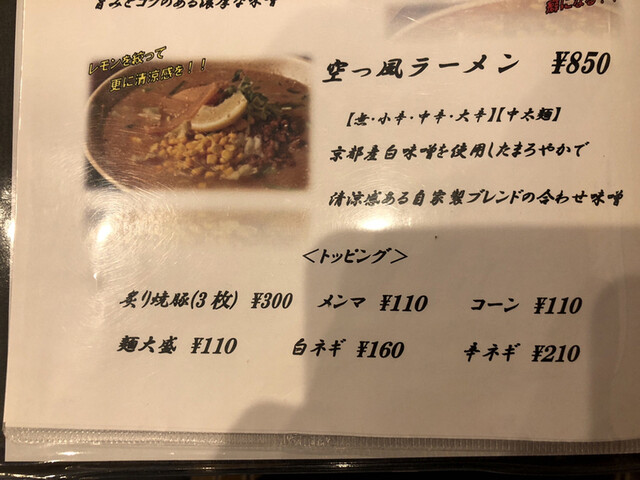 旨みとコクのある濃厚な味噌
レモンを絞って
更に清涼感を！！
空っ風ラーメン ¥850
【無・小辛・中辛・大辛】【中太麺】
京都産白味噌を使用したまろやかで
清涼感ある自家製ブレンドの合わせ味噌
＜トッピング＞
炙り焼豚(3枚) ¥300 メンマ ¥110 コーン ¥110
麺大盛 ¥110 白ネギ ¥160 辛ネギ ¥210